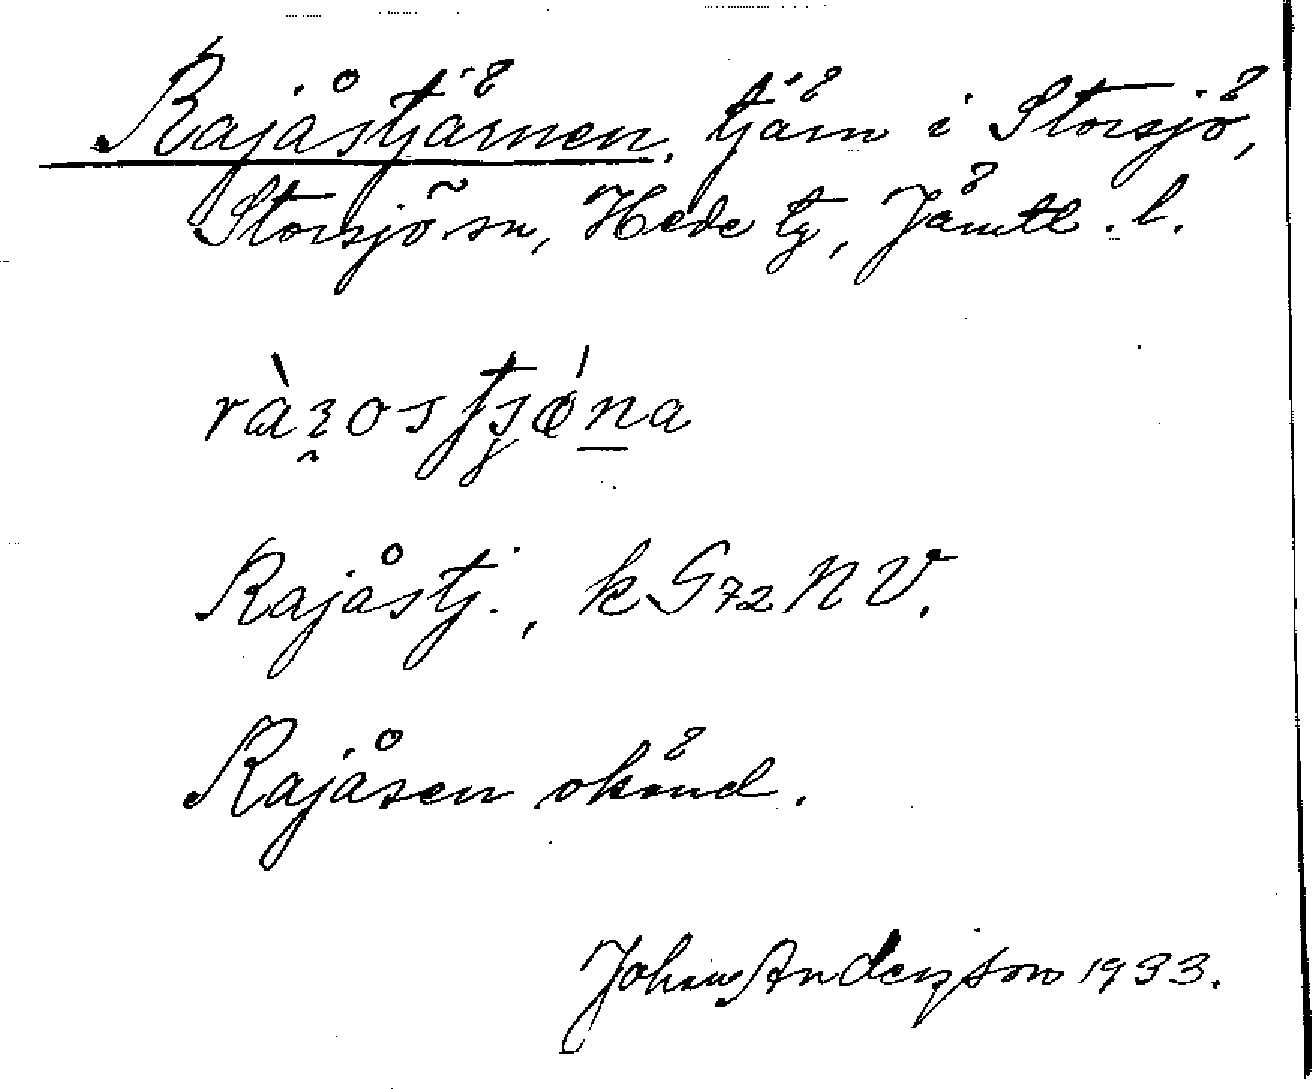 Rajåstjärnen, tjärn i Storsjö,
Storsjö sn, Hede tg, Jämtl. l.
Rajåstj., k G72 NV.
Rajåsen okänd.
Johan Anderzson 1933.